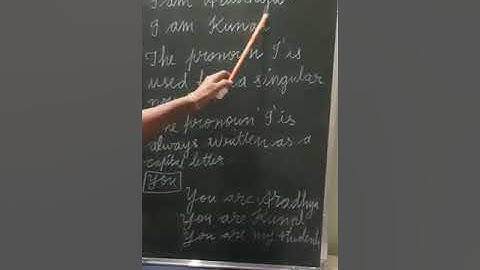 I am Aradhya
I am Kunal
The pronoun 'I' is
used for a singular
The pronoun 'I' is
always written as a
capital letter
You
You are Aradhya
You are Kunal
You are my student